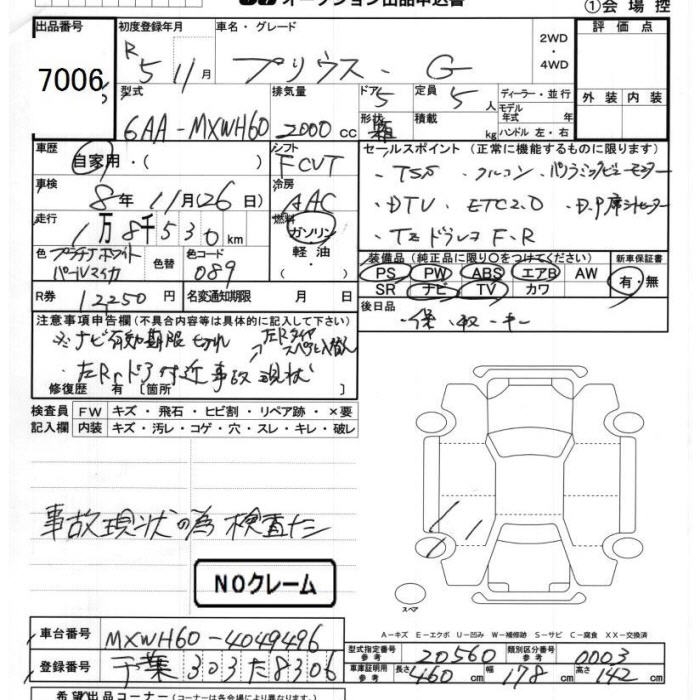 オークション出品申込書
①会場控
出品番号 初度登録年月 車名・グレード 2WD・4WD 評価点
7006 R5 11月 プリウス・G
型式 排気量 ドア 定員 ディーラー・並行 外装 内装
6AA-MXWH60 2000cc 5 5人 モデル年式 年
形状 箱 積載 kg ハンドル 左・右
車歴 自家用・( ) シフト FCVT セールスポイント (正常に機能するものに限ります)
車検 8年11月(26日) 冷房 AAC
・TSS ・フルコン ・パノラミックビューモニター
走行 1万8千530km 燃料 ガソリン・軽油・( )
・DTV ETC2.0
・Tモドラレコ F.R
色 プラチナホワイトパールマイカ 色替 色コード 089
装備品 (純正品に限り○をつけてください) 新車保証書
PS PW ABS エアB AW 有・無
SR ナビ TV カワ
R券 12250円 名変通知期限 月 日 後日品
・保・取・キー
注意事項申告欄 (不具合内容等は具体的に記入して下さい)
ナビ有効期限切れ
左Rrドア付近事故現状
修復歴 有 [箇所 ]
検査員記入欄 FW キズ・飛石・ヒビ割・リペア跡・×要
内装 キズ・汚レ・コゲ・穴・スレ・キレ・破レ
事故現状の為検査ナシ
NOクレーム
スペア
A-キズ E-エクボ U-凹み W-補修跡 S-サビ C-腐食 XX-交換済
車台番号 MXWH60-4049496 型式指定番号参考 20560 類別区分番号参考 0003
登録番号 千葉 303 た 8306 車庫証明用参考 長さ 460cm 幅 178cm 高さ 142cm
希望出品コーナー (コーナーは各会場により異なります)